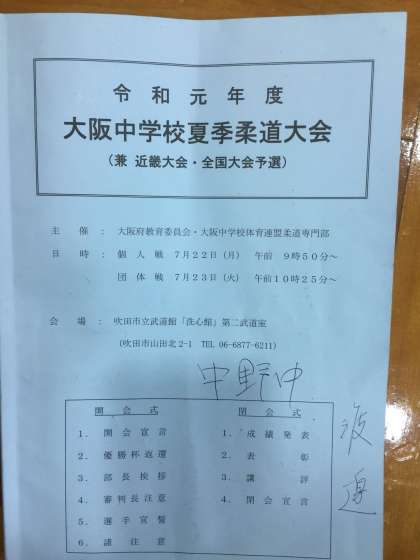 令和元年度
大阪中学校夏季柔道大会
（兼 近畿大会・全国大会予選）
主 催 ： 大阪府教育委員会・大阪中学校体育連盟柔道専門部
日 時 ： 個 人 戦 ７月２２日（月） 午前 ９時５０分～
団 体 戦 ７月２３日（火） 午前１０時２５分～
会 場 ： 吹田市立武道館「洗心館」第二武道室
(吹田市山田北2-1 TEL 06-6877-6211)
中野中
渡辺
開 会 式
１．開会宣言
２．優勝杯返還
３．部長挨拶
４．審判長注意
５．選手宣誓
６．諸注意
閉 会 式
１．成績発表
２．表彰
３．講評
４．閉会宣言